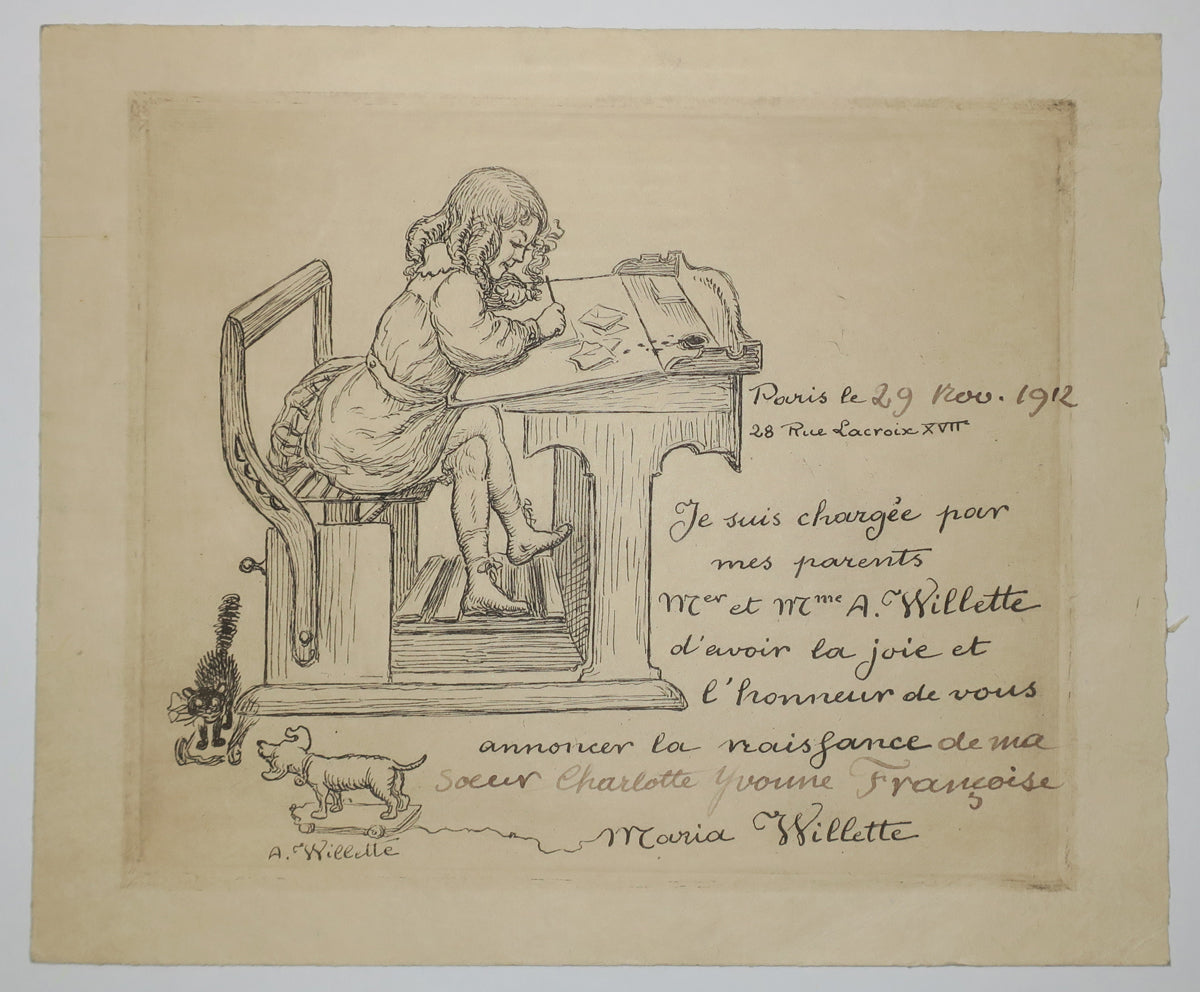 Paris le 29 Nov. 1912
28 Rue Lacroix XVII
Je suis chargée par
mes parents
Mer et Mme A. Willette
d'avoir la joie et
l'honneur de vous
annoncer la naissance de ma
Soeur Charlotte Yvonne Françoise
Maria Willette
A. Willette